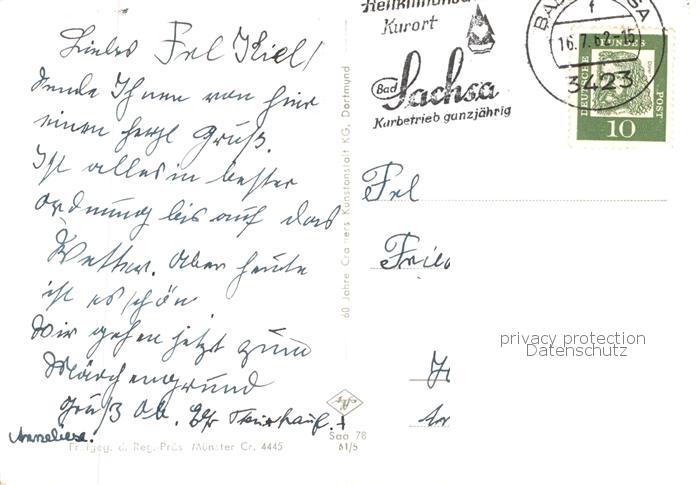 Liebes Frl Kiel!
sende Ihnen von hier
einen herzl Gruß.
Ist alles in bester
Ordnung bis auf das
Wetter. Aber heute
ist es schön
Wir gehen jetzt zum
Märchengrund
Gruß
Anneliese.
Freigeg. d. Reg.-Präs. Münster Cr. 4445
60 Jahre Cramers Kunstanstalt KG, Dortmund
Saa 78
61/5
Heilklimatischer
Kurort
Bad Sachsa
Kurbetrieb ganzjährig
BAD SACHSA
f
16.7.62-15
3423
DEUTSCHE BUNDES POST
10
Frl
privacy protection
Datenschutz